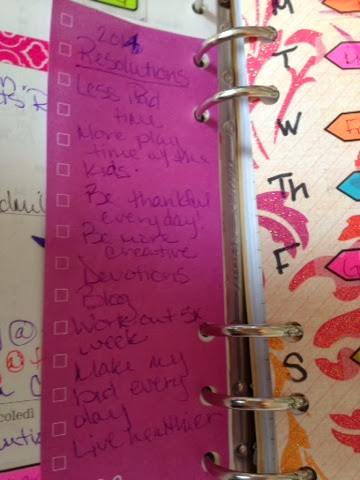 2014
Resolutions
Less iPad
time
More play
time w/ the
kids.
Be thankful
everyday!
Be more
creative
Devotions
Blog
Workout 5x
week
Make my
bed every
day
Live healthier
coledi
M
T
W
Th
F
S